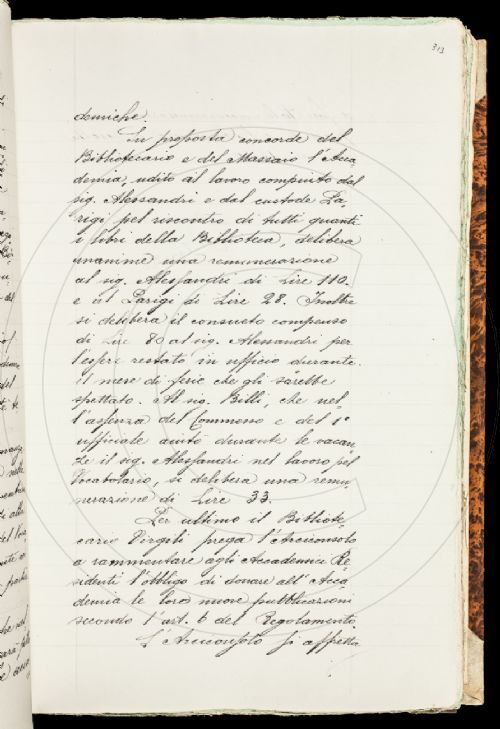 313
demiche.
In proposta concorde del
Bibliotecario e del Massaio l'Acca
demia, udito al lavoro compiuto dal
sig. Alessandri e dal custode Pa,
rigi pel riscontro di tutti quanti
i libri della Biblioteca, delibera
unanime una remunerazione
al sig. Alessandri di Lire 110.
e al Parigi di Lire 28. Inoltre
si delibera il consueto compenso
di Lire 80 al sig. Alessandri per
l'essere restato in ufficio durante
il mese di ferie che gli sarebbe
spettato. Al sig. Billi, che nel
l'assenza del Commeno e del 1º
ufficiale aiutò durante le vacan
ze il sig. Alessandri nel lavoro pel
Vocabolario, si delibera una remu,
nerazione di Lire 33.
Per ultimo il Bibliote,
cario Virgili prega l'Arciconsolo
a rammentare agli Accademici Re,
sidenti l'obbligo di donare all'Acca
demia le loro nuove pubblicazioni
secondo l'art. 6 del Regolamento.
L'Arciconsolo si affretta